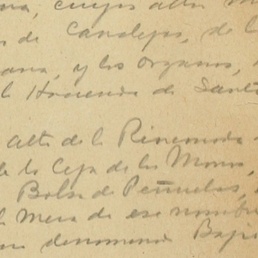 , cuyos altos
s de Canalejas, de l
ana, y los Organos,
la Hacienda de Sant
alta de la Rinconada
de la Ceja de los Monos,
Bolsa de Peñuelas,
la Mesa de ese nombre
denominan Baji